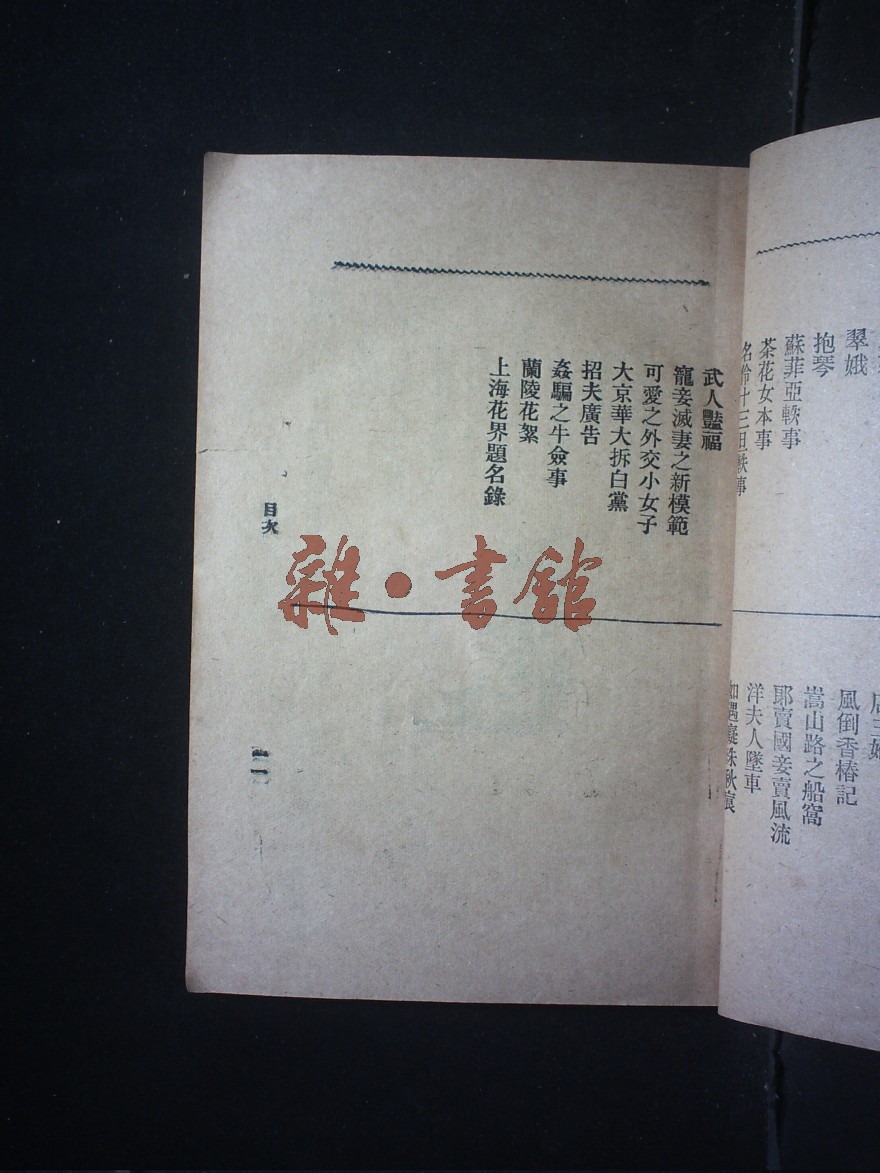 翠娥
抱琴
蘇菲亞軼事
茶花女本事
名伶十三旦軼事
風倒香椿記
嵩山路之船窩
郎賣國妾賣風流
洋夫人墜車
武人豔福
寵妾滅妻之新模範
可愛之外交小女子
大京華大拆白黨
招夫廣告
姦騙之牛僉事
蘭陵花絮
上海花界題名錄
目次
雜·書館